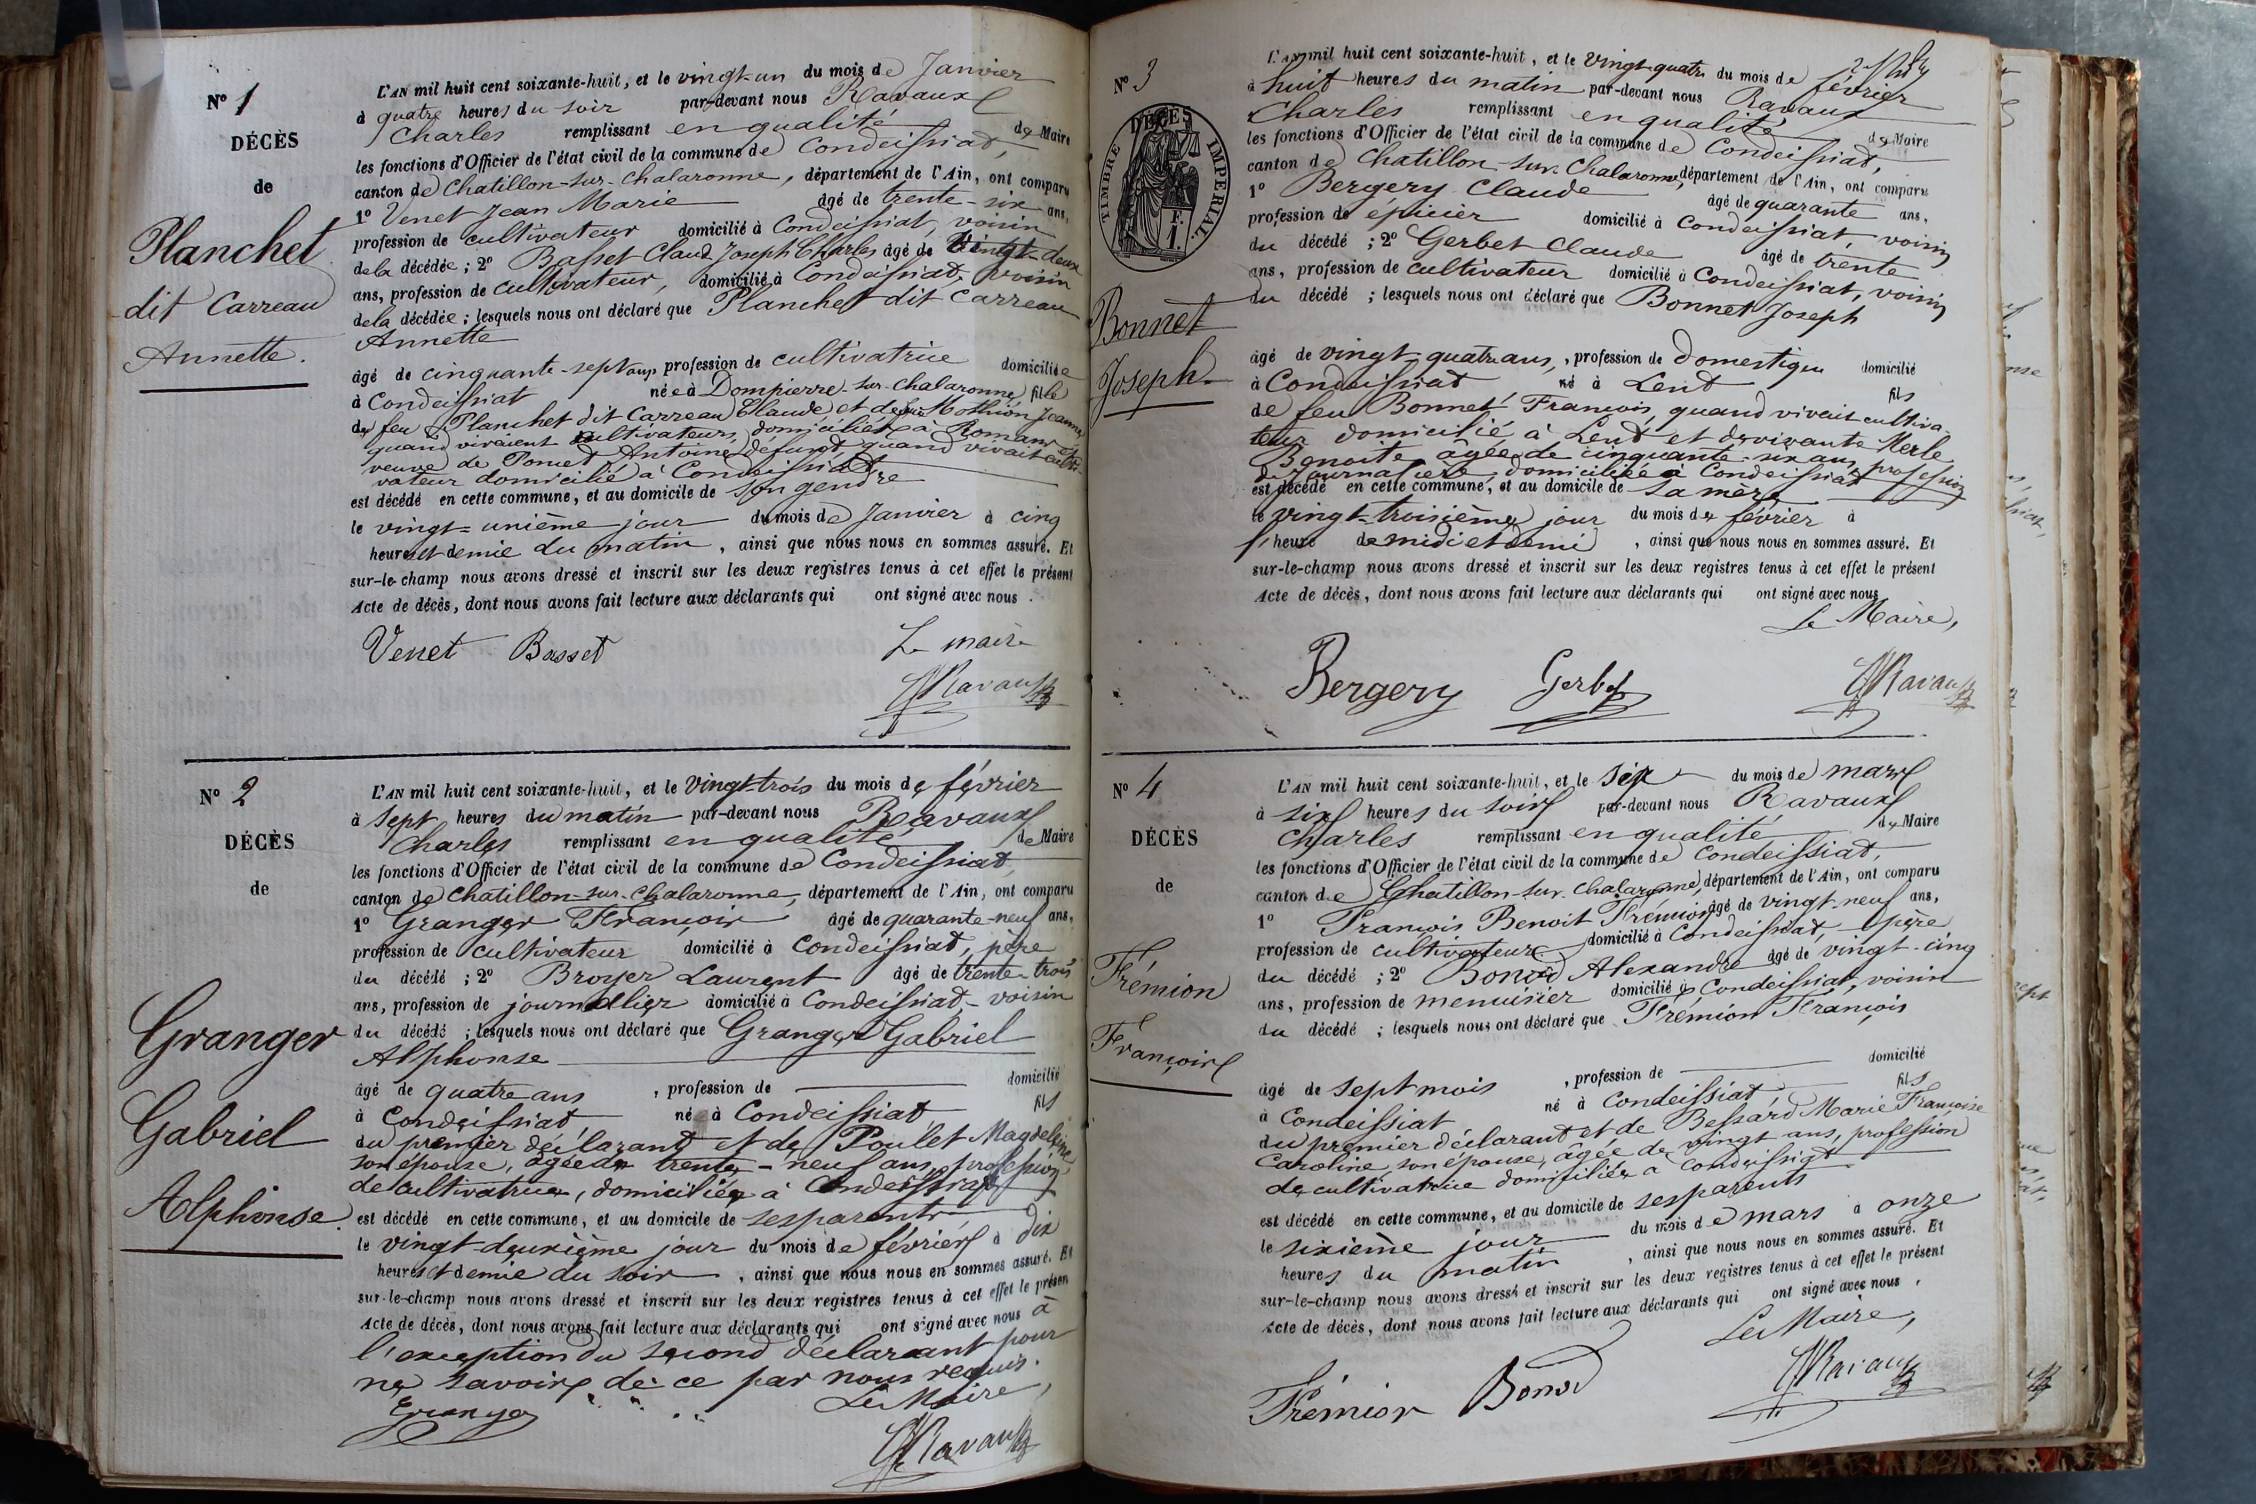 N° 1
DÉCÈS
de
Planchet
dit Carreau
Annette.
L'AN mil huit cent soixante-huit, et le vingt-un du mois de Janvier
à quatre heures du soir par-devant nous Ravaux
Charles remplissant en qualité de Maire
les fonctions d'Officier de l'état civil de la commune de Condeissiat,
canton de Chatillon-sur-Chalaronne, département de l'Ain, ont comparu
1° Venet Jean Marie âgé de trente-six ans,
profession de cultivateur domicilié à Condeissiat, voisin
de la décédée ; 2° Basset Claud Joseph Charles âgé de vingt-deux
ans, profession de cultivateur, domicilié à Condeissiat, voisin
de la décédée ; lesquels nous ont déclaré que Planchet dit Carreau
Annette
âgé de cinquante-sept ans, profession de cultivatrice domiciliée
à Condeissiat née à Dompierre-sur-Chalaronne, fille
de feu Planchet dit Carreau Claude et de Mothion Jeanne,
quand vivaient cultivateurs, domiciliés à Romans
veuve de Poncet Antoine, défunt quand vivait culti-
vateur domicilié à Condeissiat
est décédé en cette commune, et au domicile de son gendre
le vingt-unième jour du mois de Janvier à cinq
heures et demie du matin, ainsi que nous nous en sommes assuré. Et
sur-le-champ nous avons dressé et inscrit sur les deux registres tenus à cet effet le présent
Acte de décès, dont nous avons fait lecture aux déclarants qui ont signé avec nous.
Venet Basset Le maire
Ravaux
N° 2
DÉCÈS
de
Granger
Gabriel
Alphonse.
L'AN mil huit cent soixante-huit, et le vingt-trois du mois de février
à sept heures du matin par-devant nous Ravaux
Charles remplissant en qualité de Maire
les fonctions d'Officier de l'état civil de la commune de Condeissiat,
canton de Chatillon-sur-Chalaronne, département de l'Ain, ont comparu
1° Granger François âgé de quarante-neuf ans,
profession de cultivateur domicilié à Condeissiat, père
du décédé ; 2° Broyer Laurent âgé de trente-trois
ans, profession de journalier domicilié à Condeissiat, voisin
du décédé ; lesquels nous ont déclaré que Granger Gabriel
Alphonse
âgé de quatre ans, profession de domicilié
à Condeissiat, né à Condeissiat fils
du premier déclarant et de Poulet Magdeleine
son épouse, âgée de trente-neuf ans, profession
de cultivatrice, domiciliée à Condeissiat
est décédé en cette commune, et au domicile de ses parents
le vingt-deuxième jour du mois de février à dix
heures et demie du soir, ainsi que nous nous en sommes assuré. Et
sur-le-champ nous avons dressé et inscrit sur les deux registres tenus à cet effet le présen
Acte de décès, dont nous avons fait lecture aux déclarants qui ont signé avec nous à
l'exception du second déclarant pour
ne savoir de ce par nous requis.
Le Maire,
Granger
Ravaux
N° 3
TIMBRE IMPERIAL.
DÉCÈS
Bonnet
Joseph
L'AN mil huit cent soixante-huit, et le vingt-quatre du mois de février
à huit heures du matin par-devant nous Ravaux
Charles remplissant en qualité de Maire
les fonctions d'Officier de l'état civil de la commune de Condeissiat,
canton de Chatillon-sur-Chalaronne, département de l'Ain, ont comparu
1° Bergery Claude âgé de quarante ans,
profession de épicier domicilié à Condeissiat, voisin
du décédé ; 2° Gerbet Claude âgé de trente
ans, profession de cultivateur domicilié à Condeissiat, voisin
du décédé ; lesquels nous ont déclaré que Bonnet Joseph
âgé de vingt-quatre ans, profession de domestique domicilié
à Condeissiat né à Lent fils
de feu Bonnet François, quand vivait cultiva-
teur domicilié à Lent et de vivante Merle
Benoite, âgée de cinquante-six ans, profession
de journalière domiciliée à Condeissiat
est décédé en cette commune, et au domicile de sa mère
le vingt-troisième jour du mois de février à
l'heure de midi et demi, ainsi que nous nous en sommes assuré. Et
sur-le-champ nous avons dressé et inscrit sur les deux registres tenus à cet effet le présent
Acte de décès, dont nous avons fait lecture aux déclarants qui ont signé avec nous
Le Maire,
Bergery Gerbet Ravaux
N° 4
DÉCÈS
de
Frémion
François
L'AN mil huit cent soixante-huit, et le six du mois de mars
à six heures du soir par-devant nous Ravaux
Charles remplissant en qualité de Maire
les fonctions d'Officier de l'état civil de la commune de Condeissiat,
canton de Chatillon-sur-Chalaronne, département de l'Ain, ont comparu
1° François Benoit Frémion âgé de vingt-neuf ans,
profession de cultivateur domicilié à Condeissiat, père
du décédé ; 2° Bonod Alexandre âgé de vingt-cinq
ans, profession de menuisier domicilié à Condeissiat, voisin
du décédé ; lesquels nous ont déclaré que Frémion François
âgé de sept mois, profession de domicilié
à Condeissiat né à Condeissiat fils
du premier déclarant et de Bessard Marie Françoise
Caroline, son épouse, âgée de vingt ans, profession
de cultivatrice domiciliée à Condeissiat
est décédé en cette commune, et au domicile de ses parents
le sixième jour du mois de mars à onze
heures du matin, ainsi que nous nous en sommes assuré. Et
sur-le-champ nous avons dressé et inscrit sur les deux registres tenus à cet effet le présent
Acte de décès, dont nous avons fait lecture aux déclarants qui ont signé avec nous,
Le Maire,
Frémion Bonod Ravaux